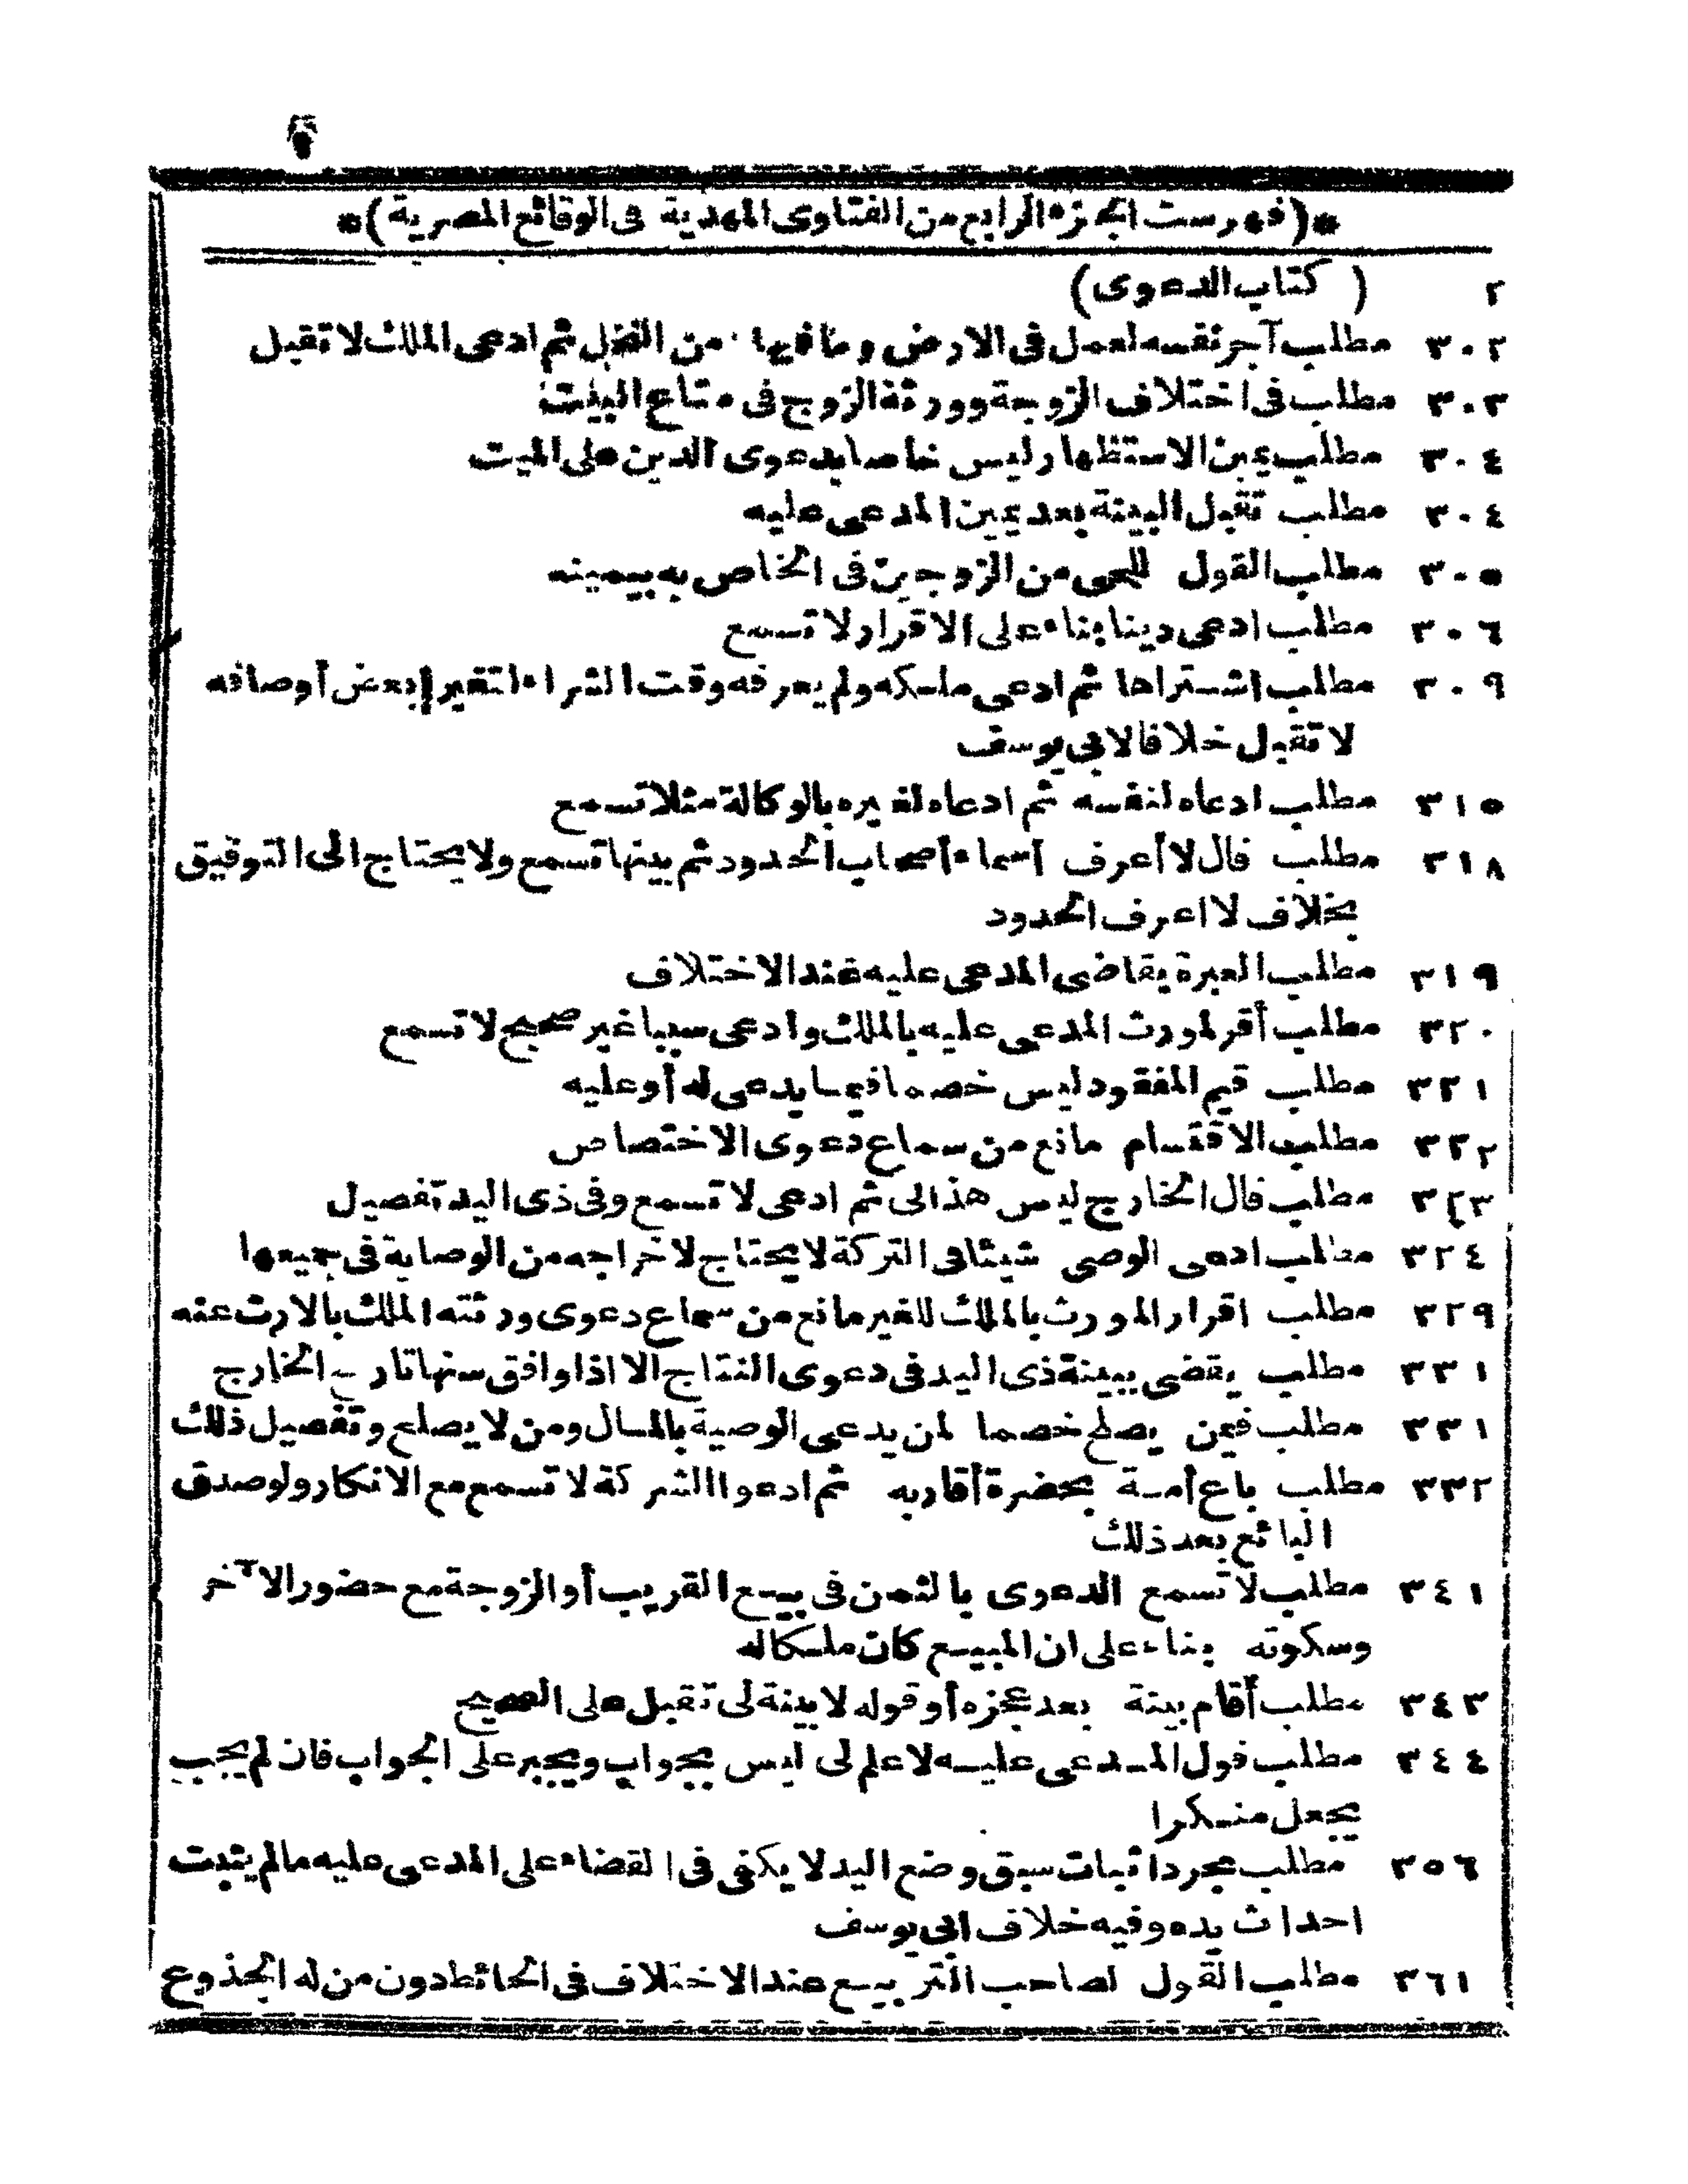 *(فهرست الجزء الرابع من الفتاوى المهدية فى الوقائع المصرية)*
٢ (كتاب الدعوى)
٣٠٢ مطلب آجر نفسه لعمل فى الارض وما فيها من النخل ثم ادعى الملك لا تقبل
٣٠٣ مطلب فى اختلاف الزوجة وورثة الزوج فى متاع البيت
٣٠٤ مطلب يمين الاستظهار ليس خاصا بدعوى الدين على الميت
٣٠٤ مطلب تقبل البينة بعد يمين المدعى عليه
٣٠٥ مطلب القول للحى من الزوجين فى الخاص به بيمينه
٣٠٦ مطلب ادعى دينا بناء على الاقرار لا تسمع
٣٠٩ مطلب اشتراها ثم ادعى ملكه ولم يعرفه وقت الشراء التغير بعض أوصافه
لا تقبل خلافا لابى يوسف
٣١٥ مطلب ادعاه لنفسه ثم ادعاه لغيره بالوكالة مثلا تسمع
٣١٨ مطلب قال لا أعرف أسماء أصحاب الحدود ثم بينها تسمع ولا يحتاج الى التوفيق
بخلاف لا اعرف الحدود
٣١٩ مطلب العبرة بقاضى المدعى عليه عند الاختلاف
٣٢٠ مطلب أقر لمورث المدعى عليه بالملك وادعى سببا غير صحيح لا تسمع
٣٢١ مطلب قيم المفقود ليس خصما فيما يدعى له أو عليه
٣٢٢ مطلب الاقتسام مانع من سماع دعوى الاختصاص
٣٢٣ مطلب قال الخارج ليس هذا لى ثم ادعى لا تسمع وفى ذى اليد تفصيل
٣٢٤ مطلب ادعى الوصى شيئا فى التركة لا يحتاج لاخراجه من الوصاية فى جميعها
٣٢٩ مطلب اقرار المورث بالملك للغير مانع من سماع دعوى ورثته الملك بالارث عنه
٣٣١ مطلب يقضى ببينة ذى اليد فى دعوى النتاج الا اذا وافق سنها تاريخ الخارج
٣٣١ مطلب فيمن يصلح خصما لمن يدعى الوصية بالمال ومن لا يصلح وتفصيل ذلك
٣٣٢ مطلب باع أمة بحضرة أقاربه ثم ادعوا الشركة لا تسمع مع الانكار ولو صدق
البائع بعد ذلك
٣٤١ مطلب لا تسمع الدعوى بالثمن فى بيع القريب أو الزوجة مع حضور الآخر
وسكوته بناء على ان المبيع كان ملكا له
٣٤٣ مطلب أقام بينة بعد عجزه أو قوله لا بينة لى تقبل على الصحيح
٣٤٤ مطلب قول المدعى عليه لا علم لى ليس بجواب ويجبر على الجواب فان لم يجب
يجعل منكرا
٣٥٦ مطلب مجرد اثبات سبق وضع اليد لا يكفى فى القضاء على المدعى عليه مالم يثبت
احداث يده وفيه خلاف ابى يوسف
٣٦١ مطلب القول لصاحب التربيع عند الاختلاف فى الحائط دون من له الجذوع